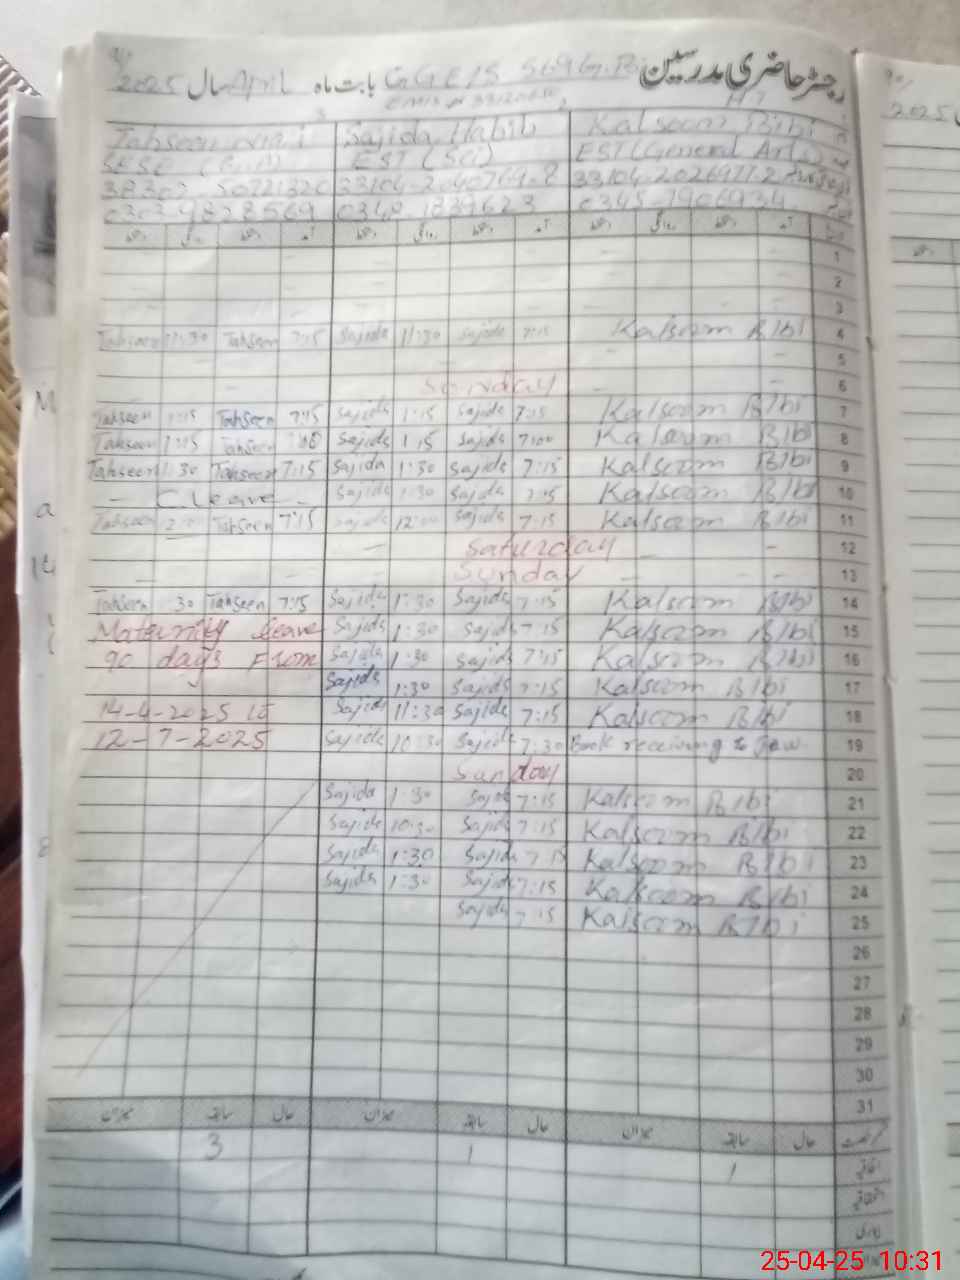 رجسٹر حاضری مدرسین GGE/S 569 G.B بابت ماہ April سال 2025
Tahseen Sajida Habib Kalsoom Bibi
SESE EST (Sci) EST (General Arts)
33104-2040769-8 33104-2026977-2
0303 9878569 0340-1839623 0345-7906934
آمد آمد آمد
1
2
3
Tahseen 11:30 Tahseen 7:15 Sajida 11:30 Sajida 7:15 Kalsoom Bibi 4
5
Sunday 6
Tahseen 1:15 Tahseen 7:15 Sajida 1:15 Sajida 7:15 Kalsoom Bibi 7
Tahseen 1:15 Tahseen Sajida 1:15 Sajida 7:00 Kalsoom Bibi 8
Tahseen 1:30 Tahseen 7:15 Sajida 1:30 Sajida 7:15 Kalsoom Bibi 9
C leave Sajida 1:30 Sajida 7:15 Kalsoom Bibi 10
Tahseen 12:00 Tahseen 7:15 Sajida 12:00 Sajida 7:15 Kalsoom Bibi 11
Saturday 12
Sunday 13
Tahseen 30 Tahseen 7:15 Sajida 1:30 Sajida 7:15 Kalsoom Bibi 14
Maternity leave Sajida 1:30 Sajida 7:15 Kalsoom Bibi 15
90 days From Sajida 1:30 Sajida 7:15 Kalsoom Bibi 16
Sajida 1:30 Sajida 7:15 Kalsoom Bibi 17
14-4-2025 to Sajida 11:30 Sajida 7:15 Kalsoom Bibi 18
12-7-2025 Sajida 10:30 Sajida 7:30 Book receiving 19
Sunday 20
Sajida 1:30 Sajida 7:15 Kalsoom Bibi 21
Sajida 10:30 Sajida 7:15 Kalsoom Bibi 22
Sajida 1:30 Sajida 7:15 Kalsoom Bibi 23
Sajida 1:30 Sajida 7:15 Kalsoom Bibi 24
Sajida 7:15 Kalsoom Bibi 25
26
27
28
29
30
31
میزان سابقہ حال میزان سابقہ حال میزان سابقہ حال
3 1 1 اتفاقی
25-04-25 10:31